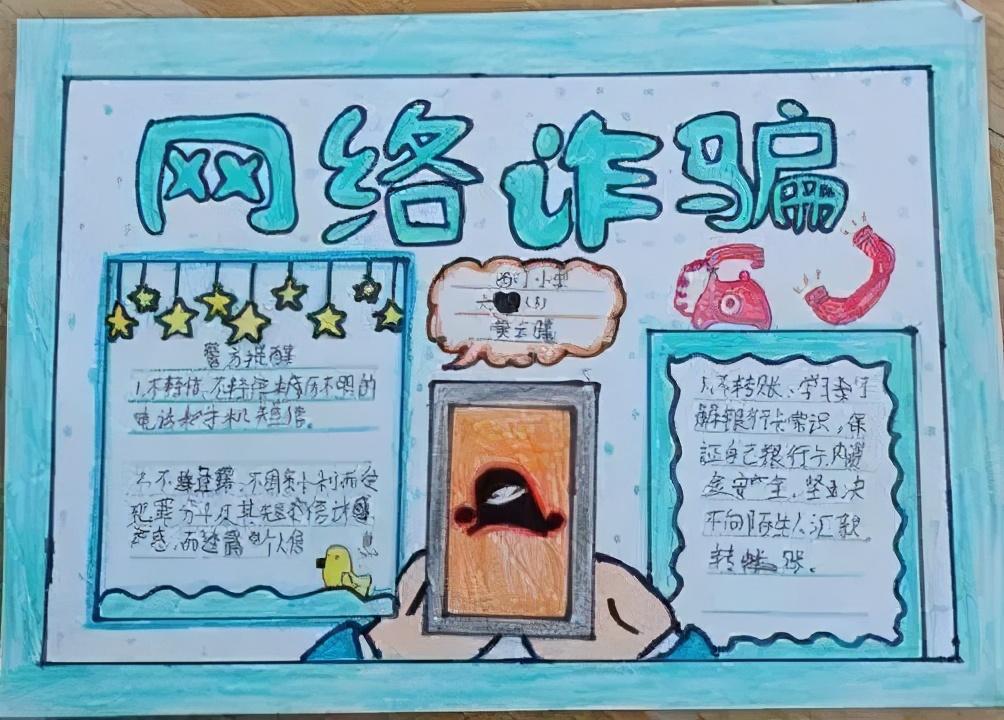 网络诈骗
西门小学
六
警方提醒
1.不轻信、不轻信来历不明的
电话和手机短信。
2.不透露、不因贪小利而受
犯罪分子及其短信
惑,而透露个人信
3.不转账、学习了
解银行卡常识,保
证自己银行卡内资
金安全,坚决
不向陌生人汇款
转账。